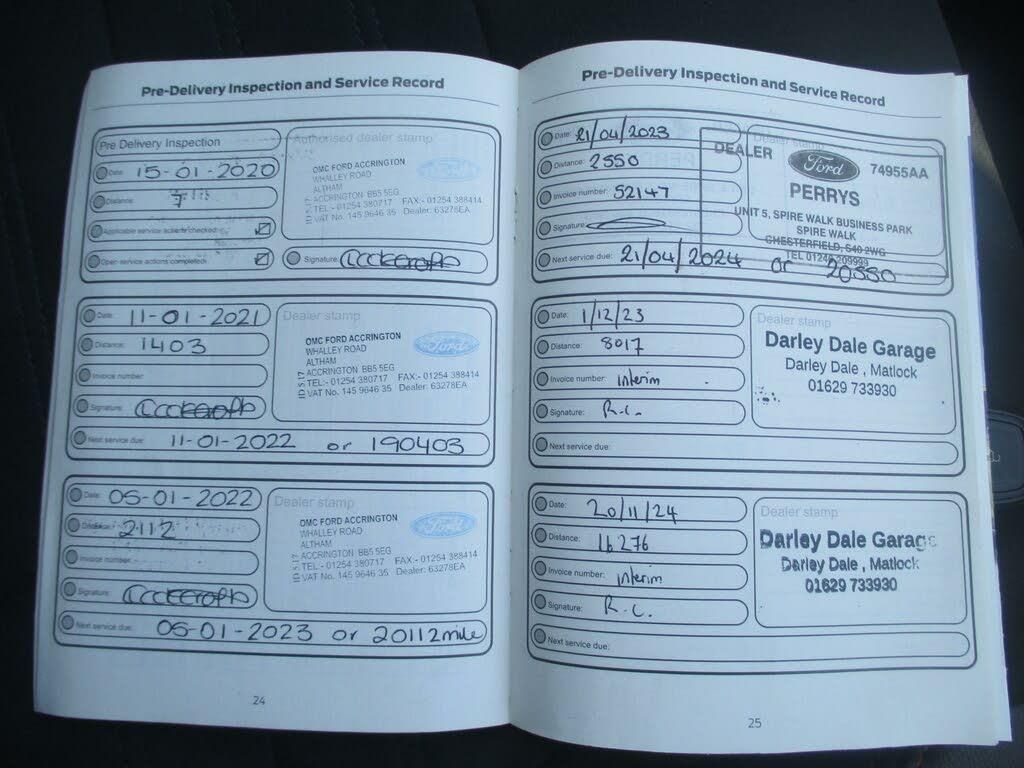 Pre-Delivery Inspection and Service Record
Pre Delivery Inspection
Date: 15-01-2020
Distance: 7
Applicable service actions checked:
Open service actions completed:
Authorised dealer stamp
OMC FORD ACCRINGTON
WHALLEY ROAD
ALTHAM
ACCRINGTON BB5 5EG
TEL:- 01254 380717 FAX:- 01254 388414
VAT No. 145 9646 35 Dealer: 63278EA
ID 5.17
Ford
Signature:
Date: 11-01-2021
Distance: 1403
Invoice number:
Signature:
Next service due: 11-01-2022 or 190403
Dealer stamp
OMC FORD ACCRINGTON
WHALLEY ROAD
ALTHAM
ACCRINGTON BB5 5EG
TEL:- 01254 380717 FAX:- 01254 388414
VAT No. 145 9646 35 Dealer: 63278EA
ID 5.17
Ford
Date: 05-01-2022
Distance: 2112
Invoice number:
Signature:
Next service due: 05-01-2023 or 20112mile
Dealer stamp
OMC FORD ACCRINGTON
WHALLEY ROAD
ALTHAM
ACCRINGTON BB5 5EG
TEL:- 01254 380717 FAX:- 01254 388414
VAT No. 145 9646 35 Dealer: 63278EA
ID 5.17
Ford
24
Pre-Delivery Inspection and Service Record
Date: 21/04/2023
Distance: 2550
Invoice number: 52147
Signature:
Next service due: 21/04/2024 or 20550
Dealer stamp
DEALER Ford 74955AA
PERRYS
UNIT 5, SPIRE WALK BUSINESS PARK
SPIRE WALK
CHESTERFIELD, S40 2WG
TEL 01246 209999
Date: 1/12/23
Distance: 8017
Invoice number: interim
Signature: R.C.
Next service due:
Dealer stamp
Darley Dale Garage
Darley Dale , Matlock
01629 733930
Date: 20/11/24
Distance: 16276
Invoice number: interim
Signature: R.C.
Next service due:
Dealer stamp
Darley Dale Garage
Darley Dale , Matlock
01629 733930
25